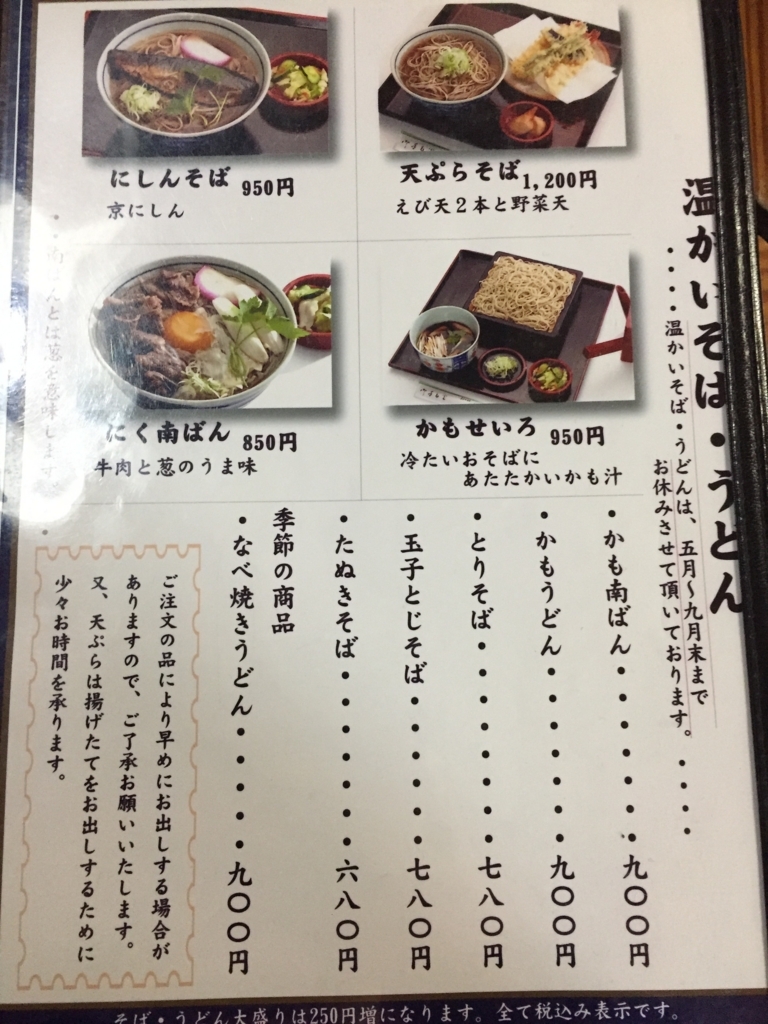 温かいそば・うどん
・・・・温かいそば・うどんは、五月～九月末まで
お休みさせて頂いております。・・・・
にしんそば 950円
京にしん
天ぷらそば 1,200円
えび天2本と野菜天
にく南ばん 850円
牛肉と葱のうま味
かもせいろ 950円
冷たいおそばに
あたたかいかも汁
・かも南ばん・・・・・・・九〇〇円
・かもうどん・・・・・・・九〇〇円
・とりそば・・・・・・・・七八〇円
・玉子とじそば・・・・・・七八〇円
・たぬきそば・・・・・・・六八〇円
季節の商品
・なべ焼きうどん・・・・・九〇〇円
・・南ばんとは葱を意味します。・
ご注文の品により早めにお出しする場合が
ありますので、ご了承お願いいたします。
又、天ぷらは揚げたてをお出しするために
少々お時間を承ります。
そば・うどん大盛りは250円増になります。全て税込み表示です。